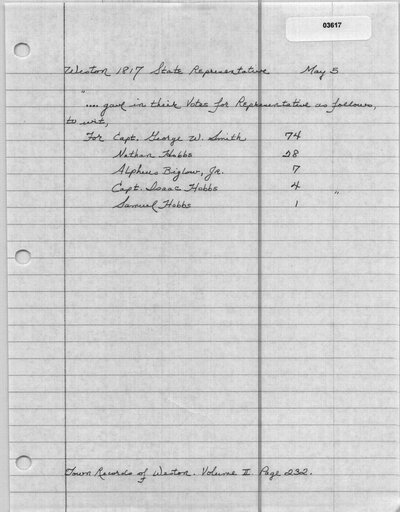 03617
Weston 1817 State Representative May 5
".... gave in their Votes for Representative as follows,
to wit,
For Capt. George W. Smith 74
Nathan Hobbs 28
Alpheus Biglow, Jr. 7
Capt. Isaac Hobbs 4 "
Samuel Hobbs 1
Town Records of Weston. Volume II. Page 232.